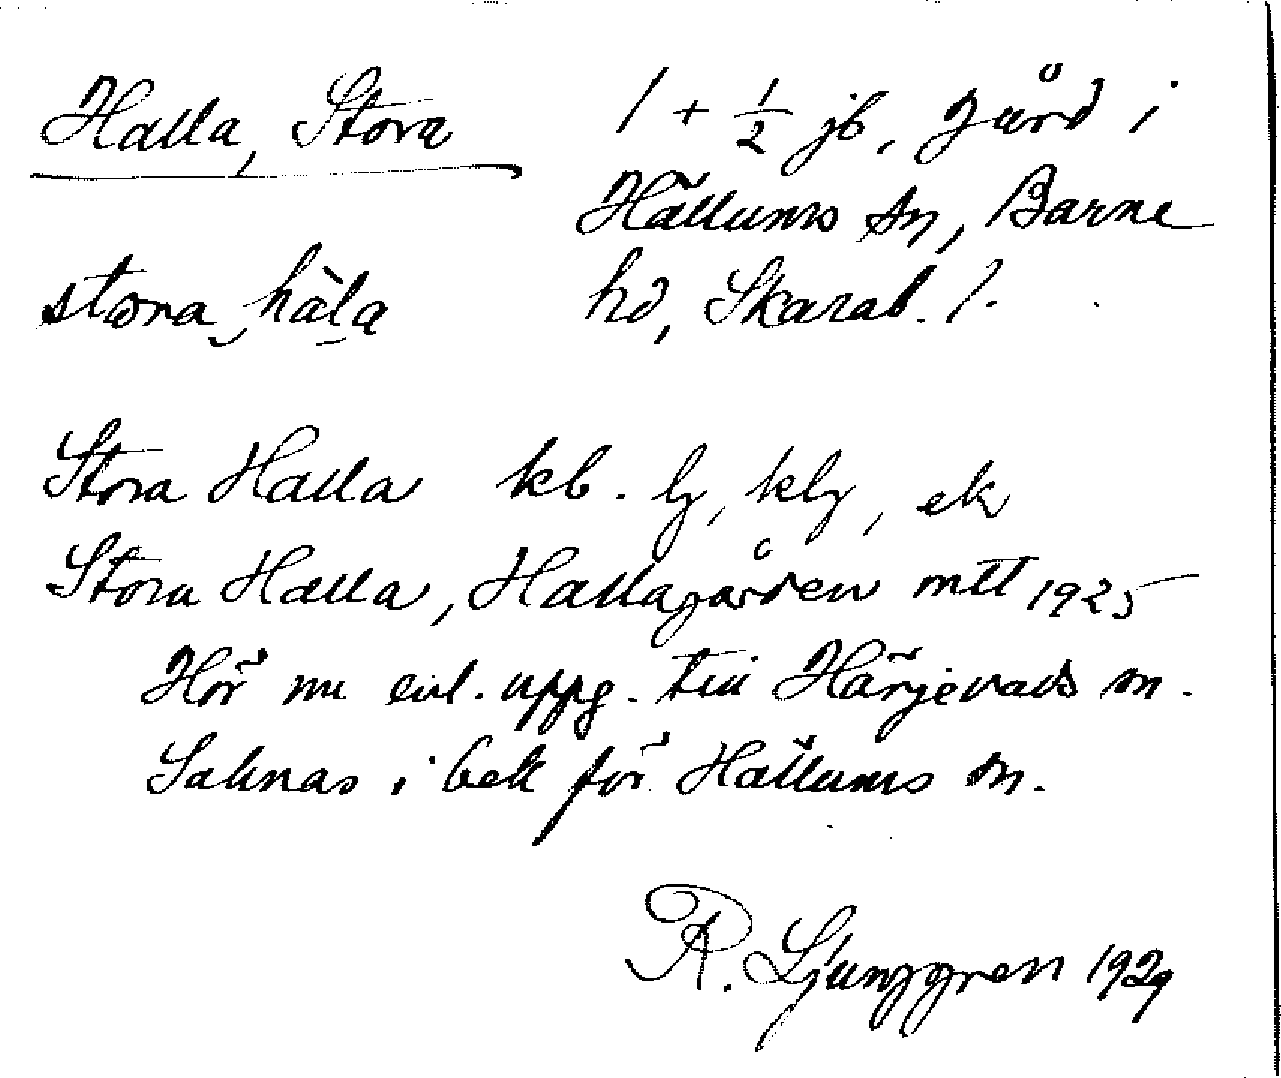 Halla, Stora
1 + 1/2 jb. gård i
Hällums sn, Barne
hd, Skarab. l.
stora hàla
Stora Halla kb. lj, klj, ek
Stora Halla, Hallagården mtl 1925
Hör nu enl. uppg. till Härjevads sn.
Saknas i bek för Hällums sn.
R. Ljunggren 1929